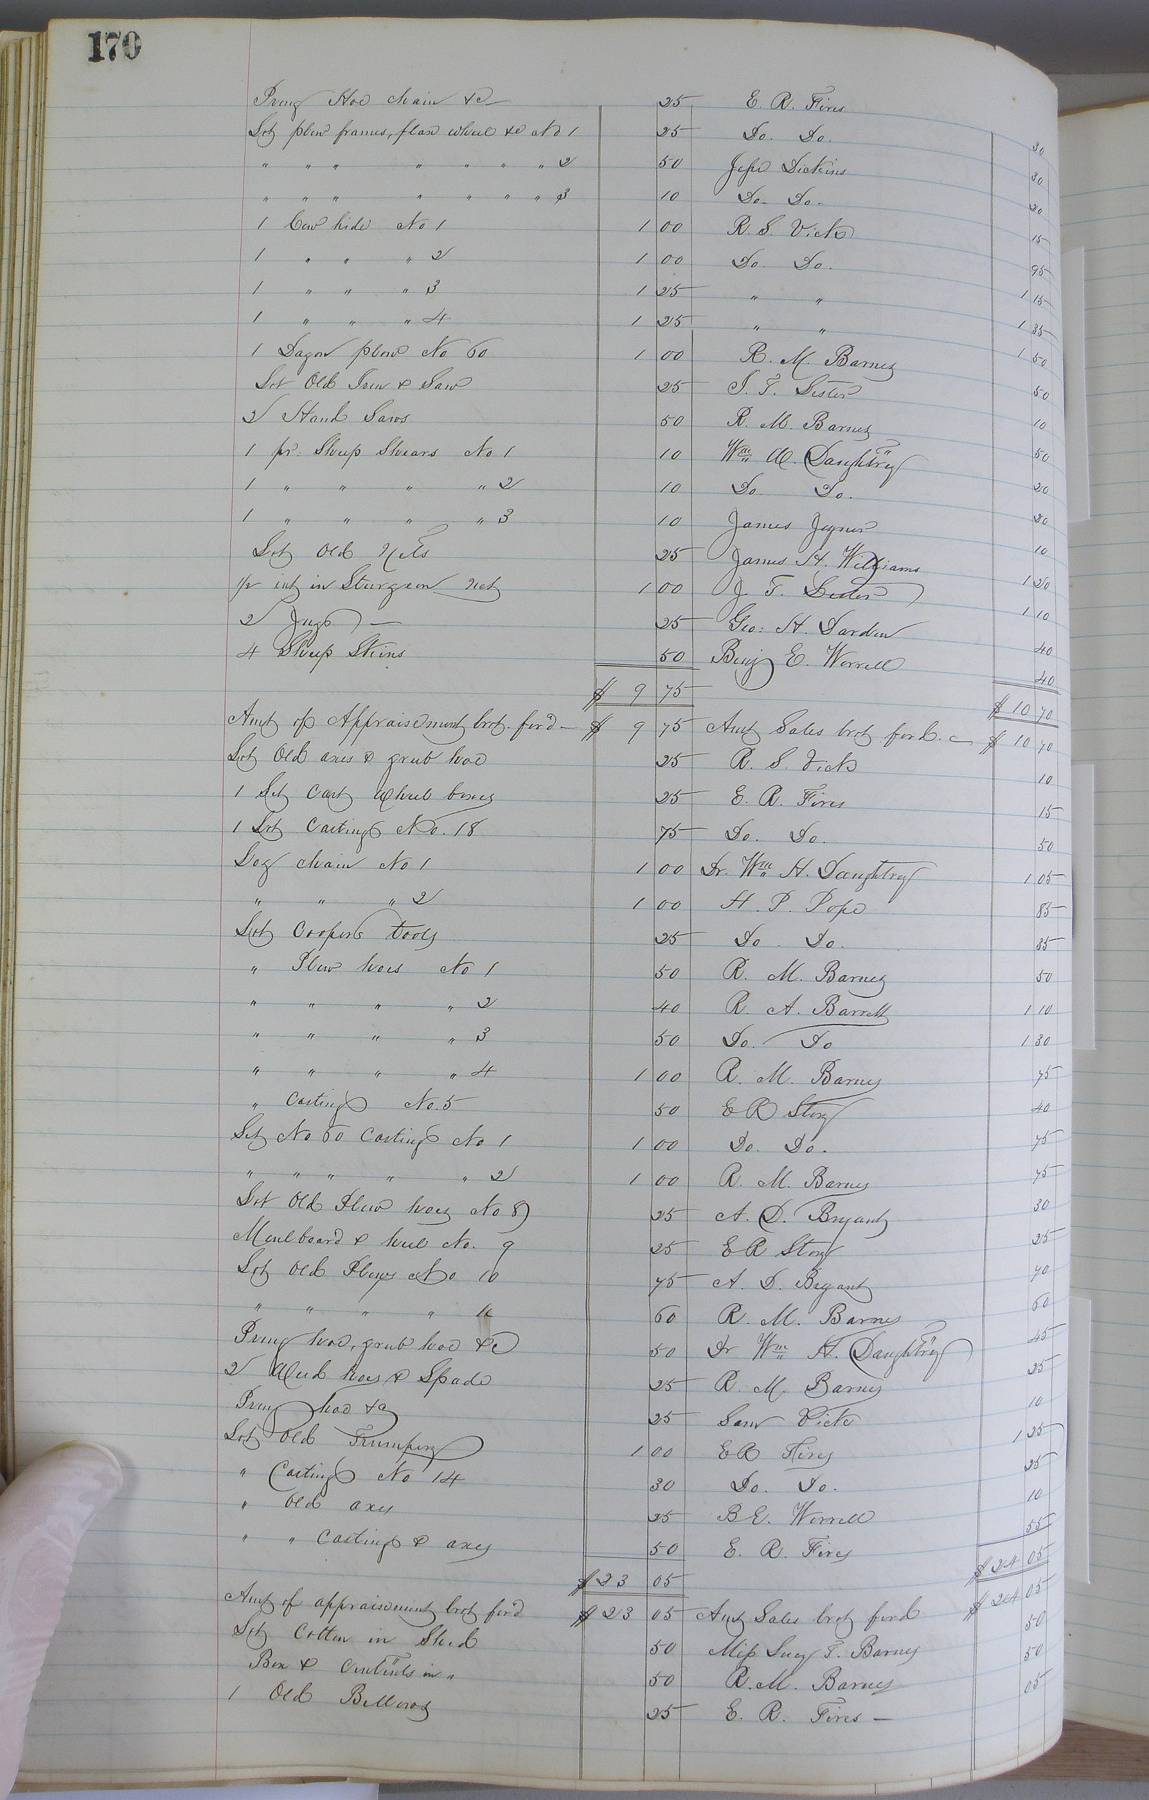 170
Prong Hoe chain &c 25 E. R. Fires 30
Lot plow frames, flax wheel &c No 1 25 Do. Do. 30
" " " " " " " 2 50 Jesse Dickins 20
" " " " " " " 3 10 Do. Do. 15
1 Cow hide No 1 1 00 R. S. Vick 95
1 " " " 2 1 00 Do. Do. 1 15
1 " " " 3 1 25 " " 1 35
1 " " " 4 1 25 " " 1 50
1 Dagon plow No 60 1 00 R. M. Barnes 50
Lot Old Iron & Saw 25 J. T. Lister 10
2 Hand Saws 50 R. M. Barnes 50
1 pr. Sheep Shears No 1 10 Wm H. Daughtrey 20
1 " " " " 2 10 Do Do. 20
1 " " " " 3 10 James Joyner 10
Lot Old Nets 25 James H. Williams 1 20
1/2 int in Sturgeon net 1 00 J. T. Lister 1 10
2 Jugs 25 Geo: H. Darden 40
4 Sheep Skins 50 Benj E. Worrell 40
$ 9 75 $ 10 70
Amt of Appraisement brot. ford — $ 9 75 Amt Sales brot ford. — $ 10 70
Lot Old axes & grub hoe 25 R. S. Vick 10
1 Set Cart Wheel boxes 25 E. R. Fires 15
1 Lot Castings No. 18 75 Do. Do. 50
Log chain No 1 1 00 Dr. Wm H. Daughtrey 1 05
" " " 2 1 00 H. P. Pope 85
Lot Coopers tools 25 Do Do. 35
" Plow hoes No 1 50 R. M. Barnes 50
" " " " 2 40 R. A. Barrett 1 10
" " " " 3 50 Do. Do 1 30
" " " " 4 1 00 R. M. Barnes 75
" Castings No. 5 50 E R Story 40
Lot No 60 Castings No 1 1 00 Do. Do. 75
" " " " " 2 1 00 R. M. Barnes 75
Lot Old Plow hoes No 8 25 A. D. Bryant 30
Moulboard & heel No. 9 25 E R Story 25
Lot Old Plows No 10 75 A. D. Bryant 70
" " " " 11 60 R. M. Barnes 60
Prong hoe, grub hoe &c 50 Dr Wm H. Daughtrey 45
2 Weed hoes & Spade 25 R. M. Barnes 25
Prong hoe &c 25 Saml Vick 10
Lot Old Trumpery 1 00 E R Fires 1 25
" Castings No 14 30 Do. Do. 25
" Old axes 25 B E. Worrell 10
" " Castings & axes 50 E. R. Fires 55
$ 23 05 $ 24 05
Amt of appraisement brot ford $ 23 05 Amt Sales brot ford $ 24 05
Lot Cotton in Shed 50 Miss Lucy T. Barnes 50
Box & Contents in " 50 R. M. Barnes 50
1 Old Bellows 25 E. R. Fires — 05